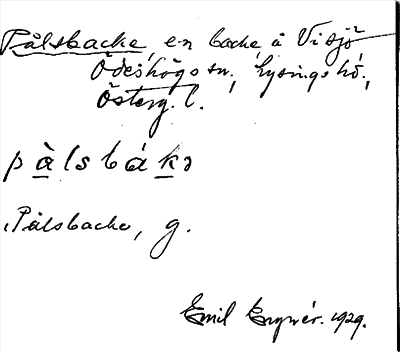 Pålsbacke, en backe å Visjö
Ödeshögs sn., Lysings hd.,
Österg. l.
pàlsbákə
Pålsbacke, g.
Emil Engwér. 1929.